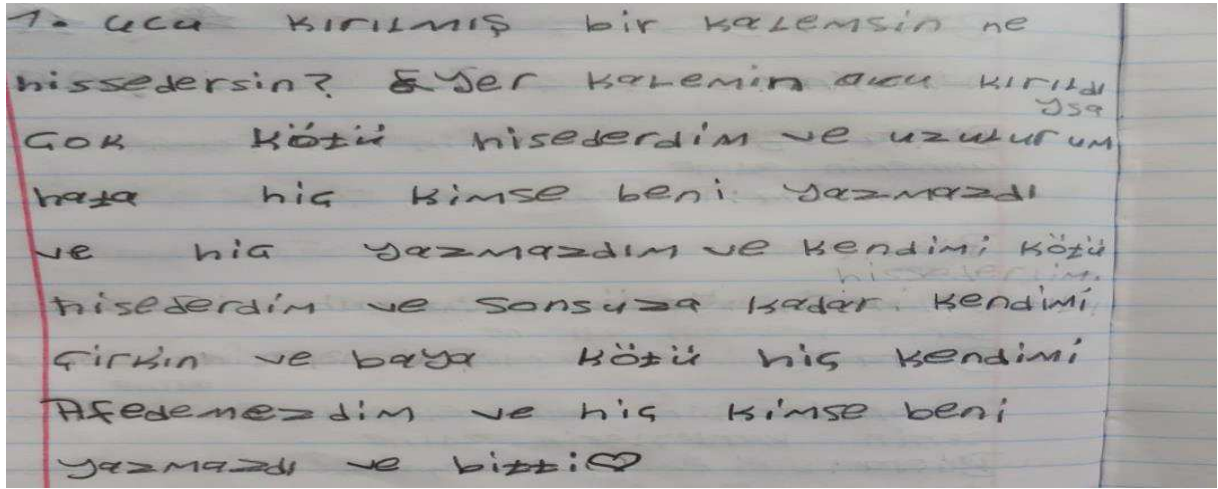 1. ucu kırılmış bir kalemsin ne
hissedersin? Eğer kalemin ucu kırıldı
ysa
Çok kötü hisederdim ve uzulurum
hata hiç kimse beni yazmazdı
ve hiç yazmazdım ve kendimi kötü
hissederdim.
hisederdim ve sonsuza kadar kendimi
çirkin ve baya kötü hiç kendimi
Afedemezdim ve hiç kimse beni
yazmazdı ve bitti♡